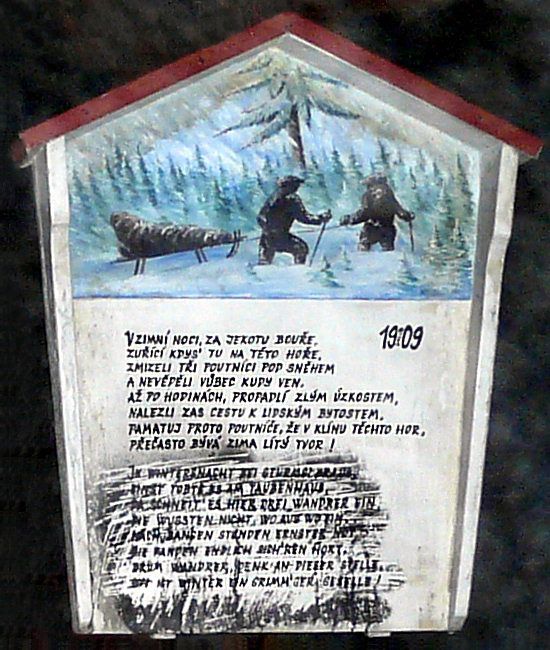 V ZIMNÍ NOCI, ZA JEKOTU BOUŘE,
ZUŘÍCÍ KDYS' TU NA TÉTO HOŘE,
ZMIZELI TŘI POUTNÍCI POD SNĚHEM
A NEVĚDĚLI VŮBEC KUDY VEN.
AŽ PO HODINÁCH, PROPADLÍ ZLÝM ÚZKOSTEM,
NALEZLI ZAS CESTU K LIDSKÝM BYTOSTEM,
PAMATUJ PROTO POUTNÍČE, ŽE V KLÍNU TĚCHTO HOR,
PŘEČASTO BÝVÁ ZIMA LÍTÝ TVOR !
1909
IN WINTERSNACHT BEI STURMGEBRAUS,
EINST TOBTE ES AM TAUBENHAUS,
DA SCHNEIT' ES HIER DREI WANDRER EIN
DIE WUSSTEN NICHT, WO AUS WO EIN.
NACH BANGEN STUNDEN ERNSTER NOT,
SIE FANDEN ENDLICH SICH'REN HORT.
DRUM WANDRER, DENK AN DIESER STELLE,
IST WINTER EIN GRIMM'GER GESELLE !